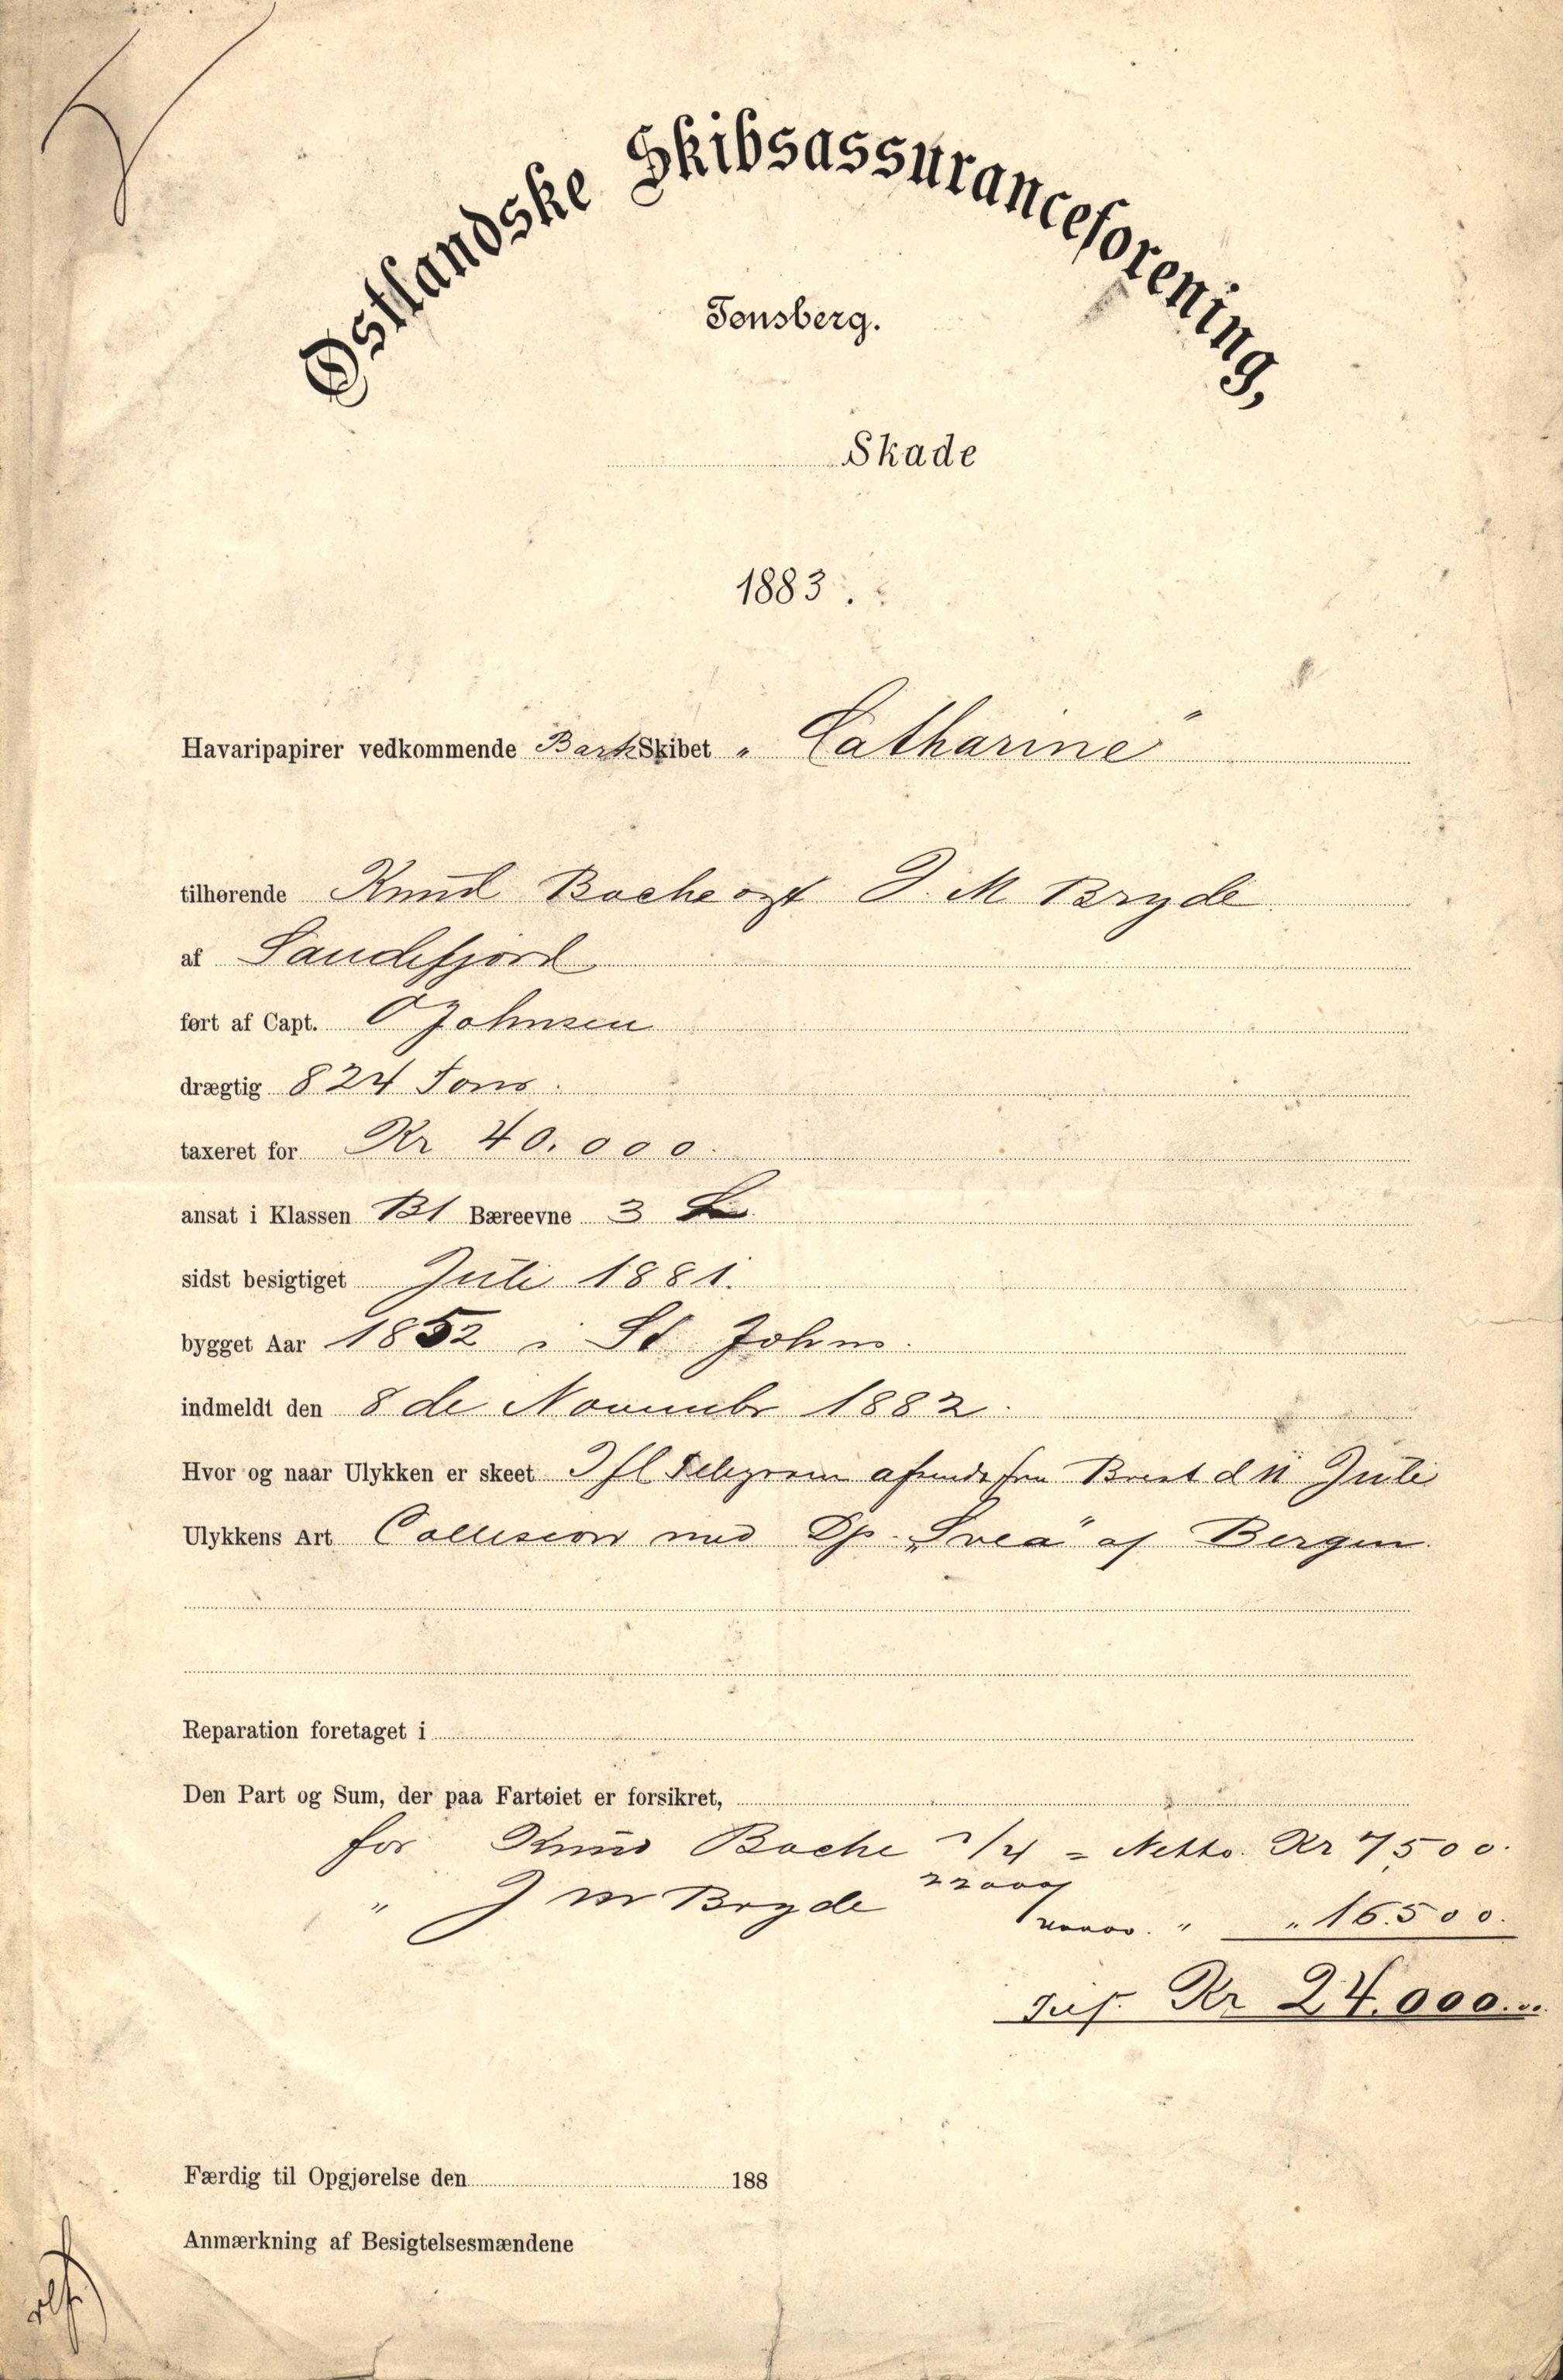 Østlandske Skibsassuranceforening,
Tønsberg.
Skade
1883.
Havaripapirer vedkommende Bark Skibet „Catharine"
tilhørende Knud Bache og J. M Bryde
af Sandefjord
ført af Capt. O Johnsen
drægtig 824 Tons.
taxeret for Kr 40.000.
ansat i Klassen B1 Bæreevne 3
sidst besigtiget Juli 1881.
bygget Aar 1852 i St Johns.
indmeldt den 8de Novembr 1882.
Hvor og naar Ulykken er skeet Ifl Telegram afsendt fra Brest d 11 Juli
Ulykkens Art Collision med Dp. „Svea" af Bergen.
Reparation foretaget i
Den Part og Sum, der paa Fartøiet er forsikret,
for Knud Bache 1/4 = Netto. Kr 7,500.
" J M Bryde 22000/40000. " „ 16.500.
Kr 24.000...
Færdig til Opgjørelse den 188
Anmærkning af Besigtelsesmændene